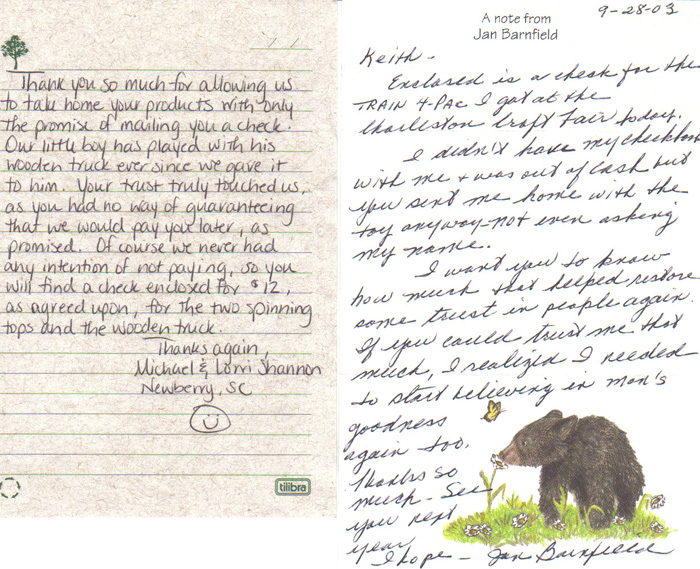 Thank you so much for allowing us
to take home your products with only
the promise of mailing you a check.
Our little boy has played with his
wooden truck ever since we gave it
to him. Your trust truly touched us,
as you had no way of guaranteeing
that we would pay you later, as
promised. Of course we never had
any intention of not paying, so you
will find a check enclosed for $12,
as agreed upon, for the two spinning
tops and the wooden truck.
Thanks again,
Michael & Lorri Shannon
Newberry, SC
tilibra
9-28-03
A note from
Jan Barnfield
Keith -
Enclosed is a check for the
TRAIN 4-PAC I got at the
Charleston Craft Fair today.
I didn't have my checkbook
with me & was out of cash but
you sent me home with the
toy anyway-not even asking
my name.
I want you to know
how much that helped restore
some trust in people again.
If you could trust me that
much, I realized I needed
to start believing in man's
goodness
again too.
Thanks so
much - See
you next
year
I hope - Jan Barnfield